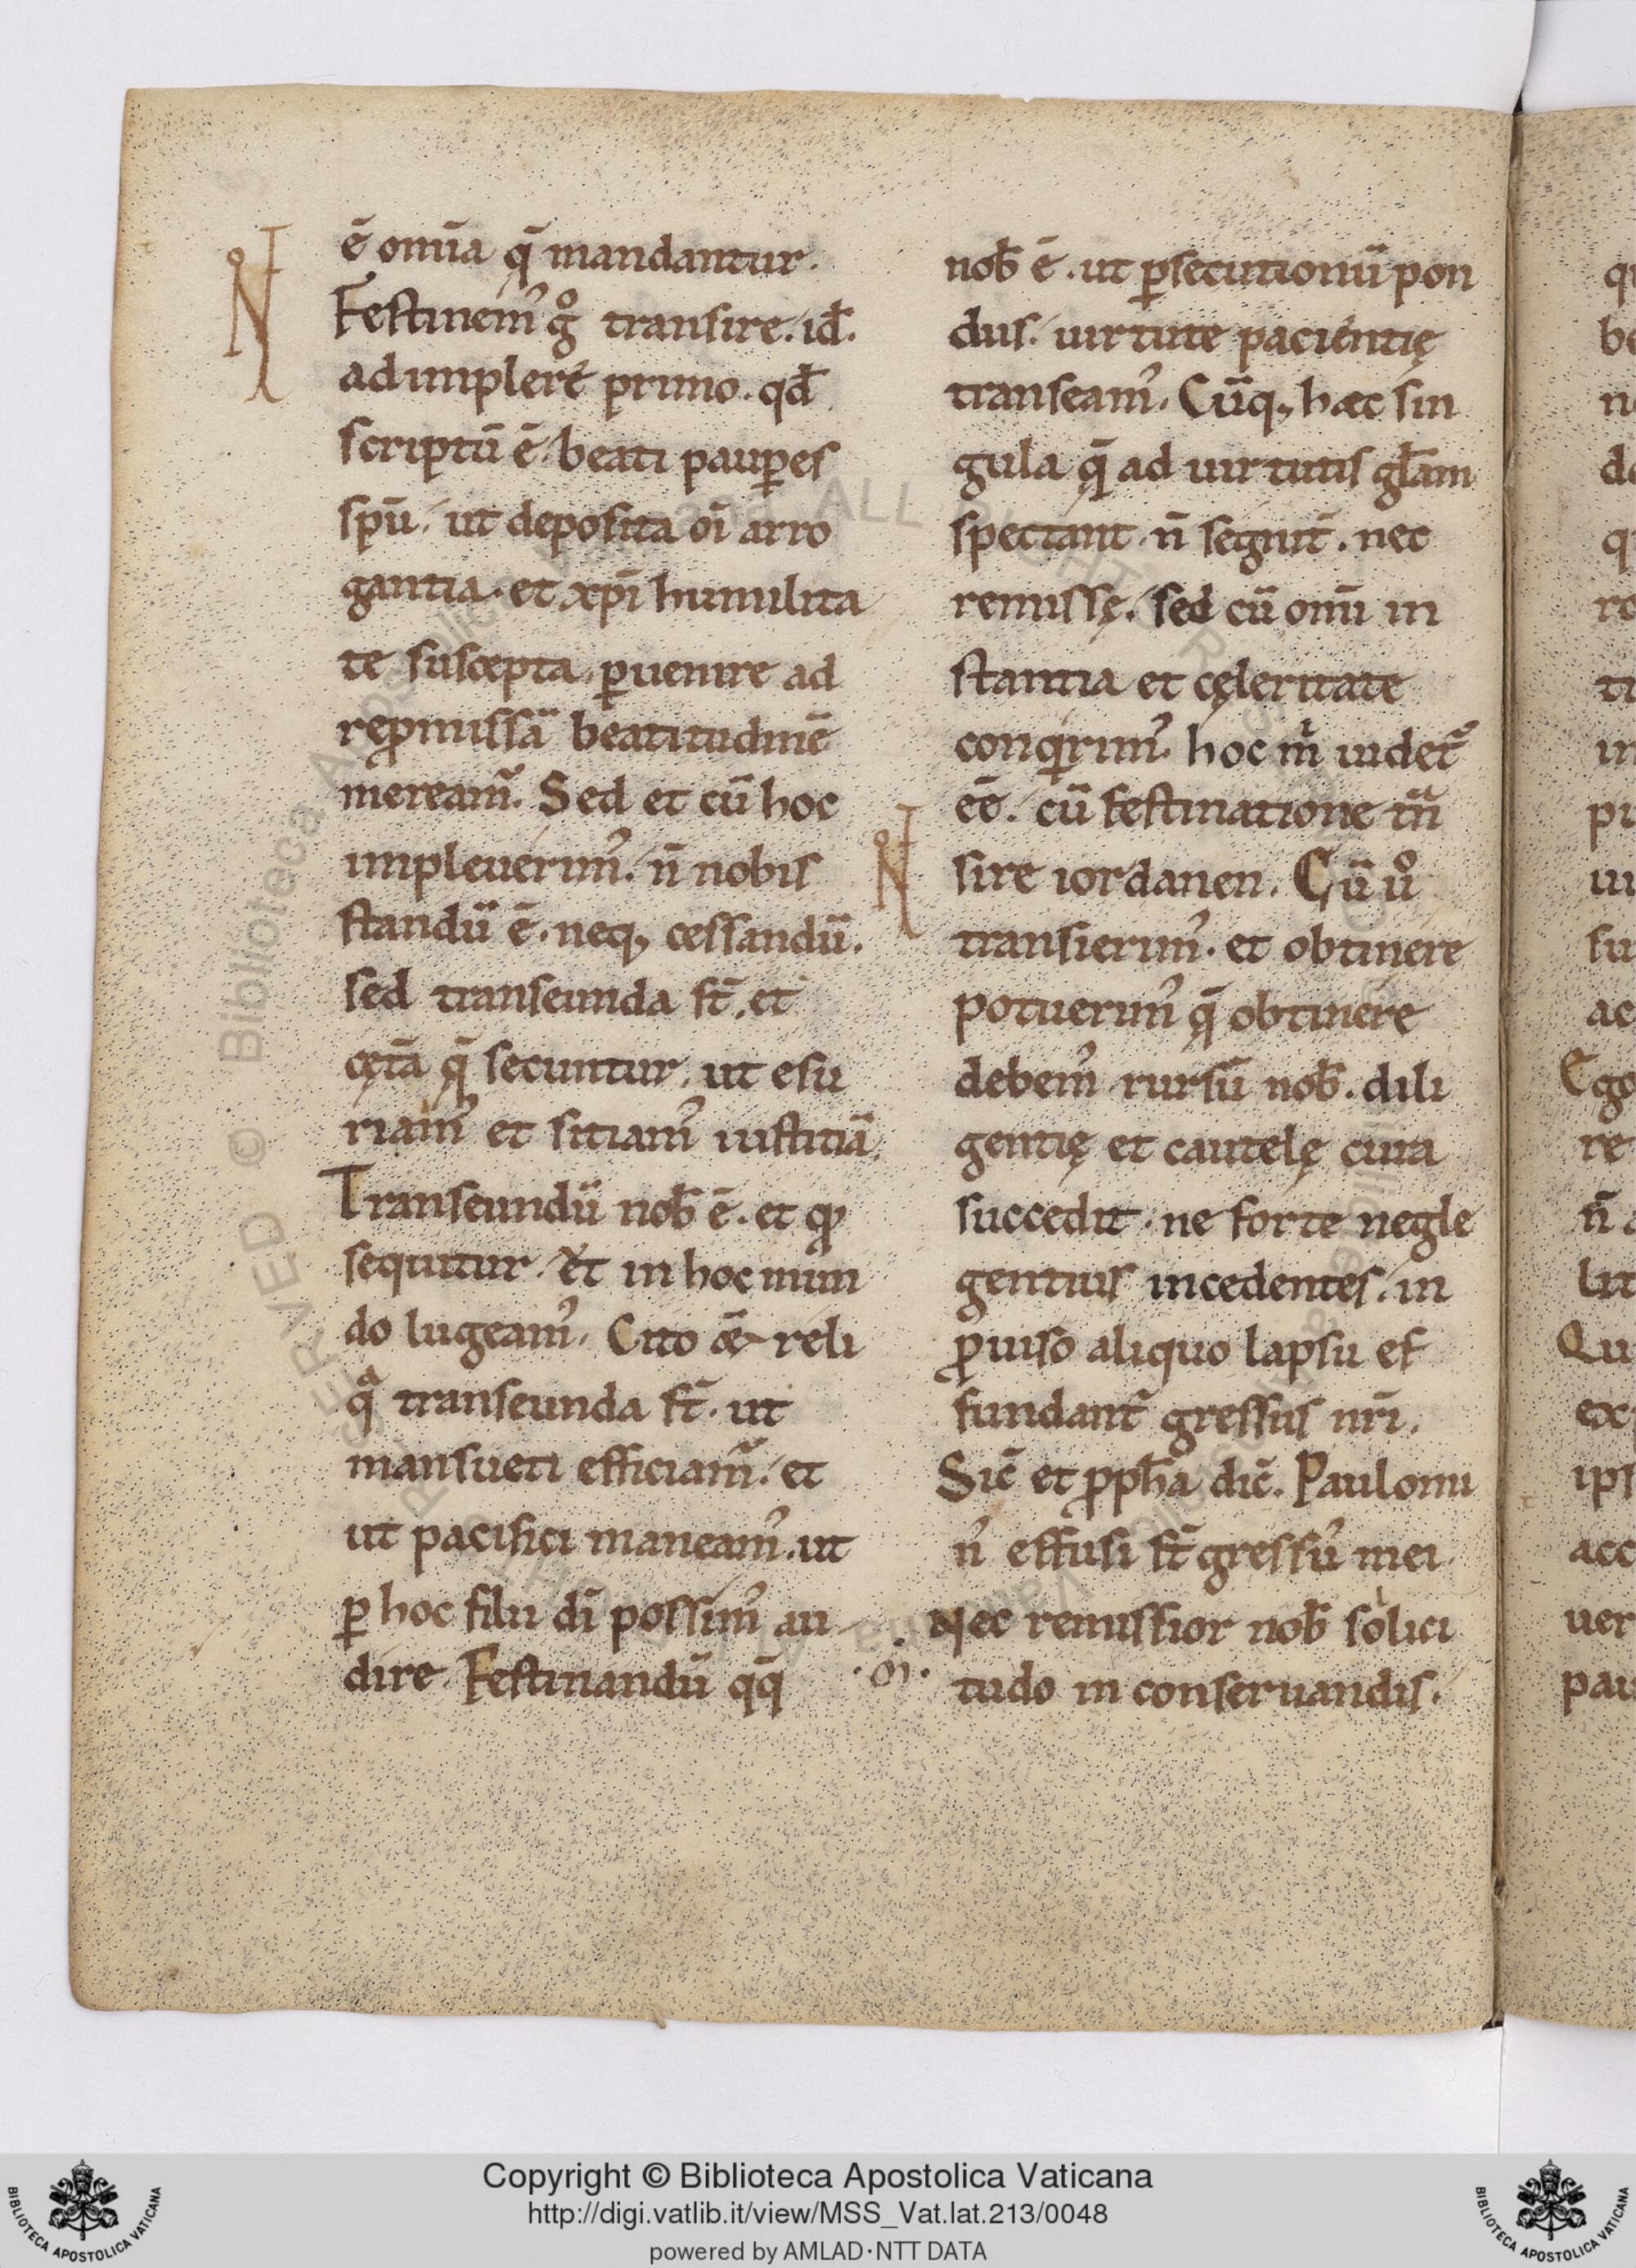 ē om̄ia q̄ mandantur.
Festinem᾽ gͦ transire. id̄.
adimplere primo. qd̄
scriptū ē. beati paup̱es
sp̄u. ut deposita oī arro
gantia. et xp̄i humilita
te suscepta. p̱uenire ad
rep̱missā beatitudinē
mereamᷣ. Sed et cū hoc
impleuerim᾽. n̄ nobis
standū ē. neq; cessandū.
sed transeunda st̄. et
cęt̄a q̄ secuntur. ut esu
riam᾽ et sitiam᾽ iustitiā.
Transeundū nob̄ ē. et qꝫ
sequitur. et in hoc mun
do lugeam᾽. Cito & reli
qͣ transeunda st̄. ut
mansueti efficiamᷣ. et
ut pacifici maneam᾽. ut
p̱ hoc filii dī possim᾽ au
dire. Festinandū qq̄
nob̄ ē. ut p̱secutionū pon
dus. uirtute pacientię
transeam᾽. Cūq; hæc sin
gula q̄ ad uirtutis gl̄am
spectant. n̄ segnit̄. nec
remissę. sed cū om̄i in
stantia et cęleritate
conqirim᾽. hoc m̄ uidetᷣ
eē. cū festinatione tn̄
sire iordanen. Cū uͦ
transierim᾽. et obtinere
potuerim᾽ q̄ obtinere
debem᾽. rursū nob̄. dili
gentię et cautelę cura
succedit. ne forte negle
gentius incedentes. in
ꝓuiso aliquo lapsu ef
fundant᷑ gressus nr̄i.
Sic̄ et ꝓph̄a dic̄. Paulomi
n᾽ effusi st̄ gressus mei.
Nec remissior nob̄ solici
tudo in conseruandis.
Copyright © Biblioteca Apostolica Vaticana
http://digi.vatlib.it/view/MSS_Vat.lat.213/0048
powered by AMLAD·NTT DATA
BIBLIOTECA APOSTOLICA VATICANA
BIBLIOTECA APOSTOLICA VATICANA